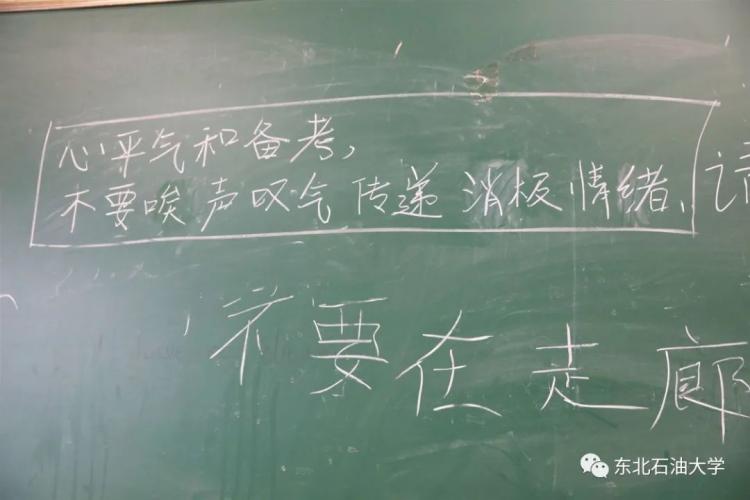 心平气和备考,
不要唉声叹气传递消极情绪、请
不要在走廊
东北石油大学